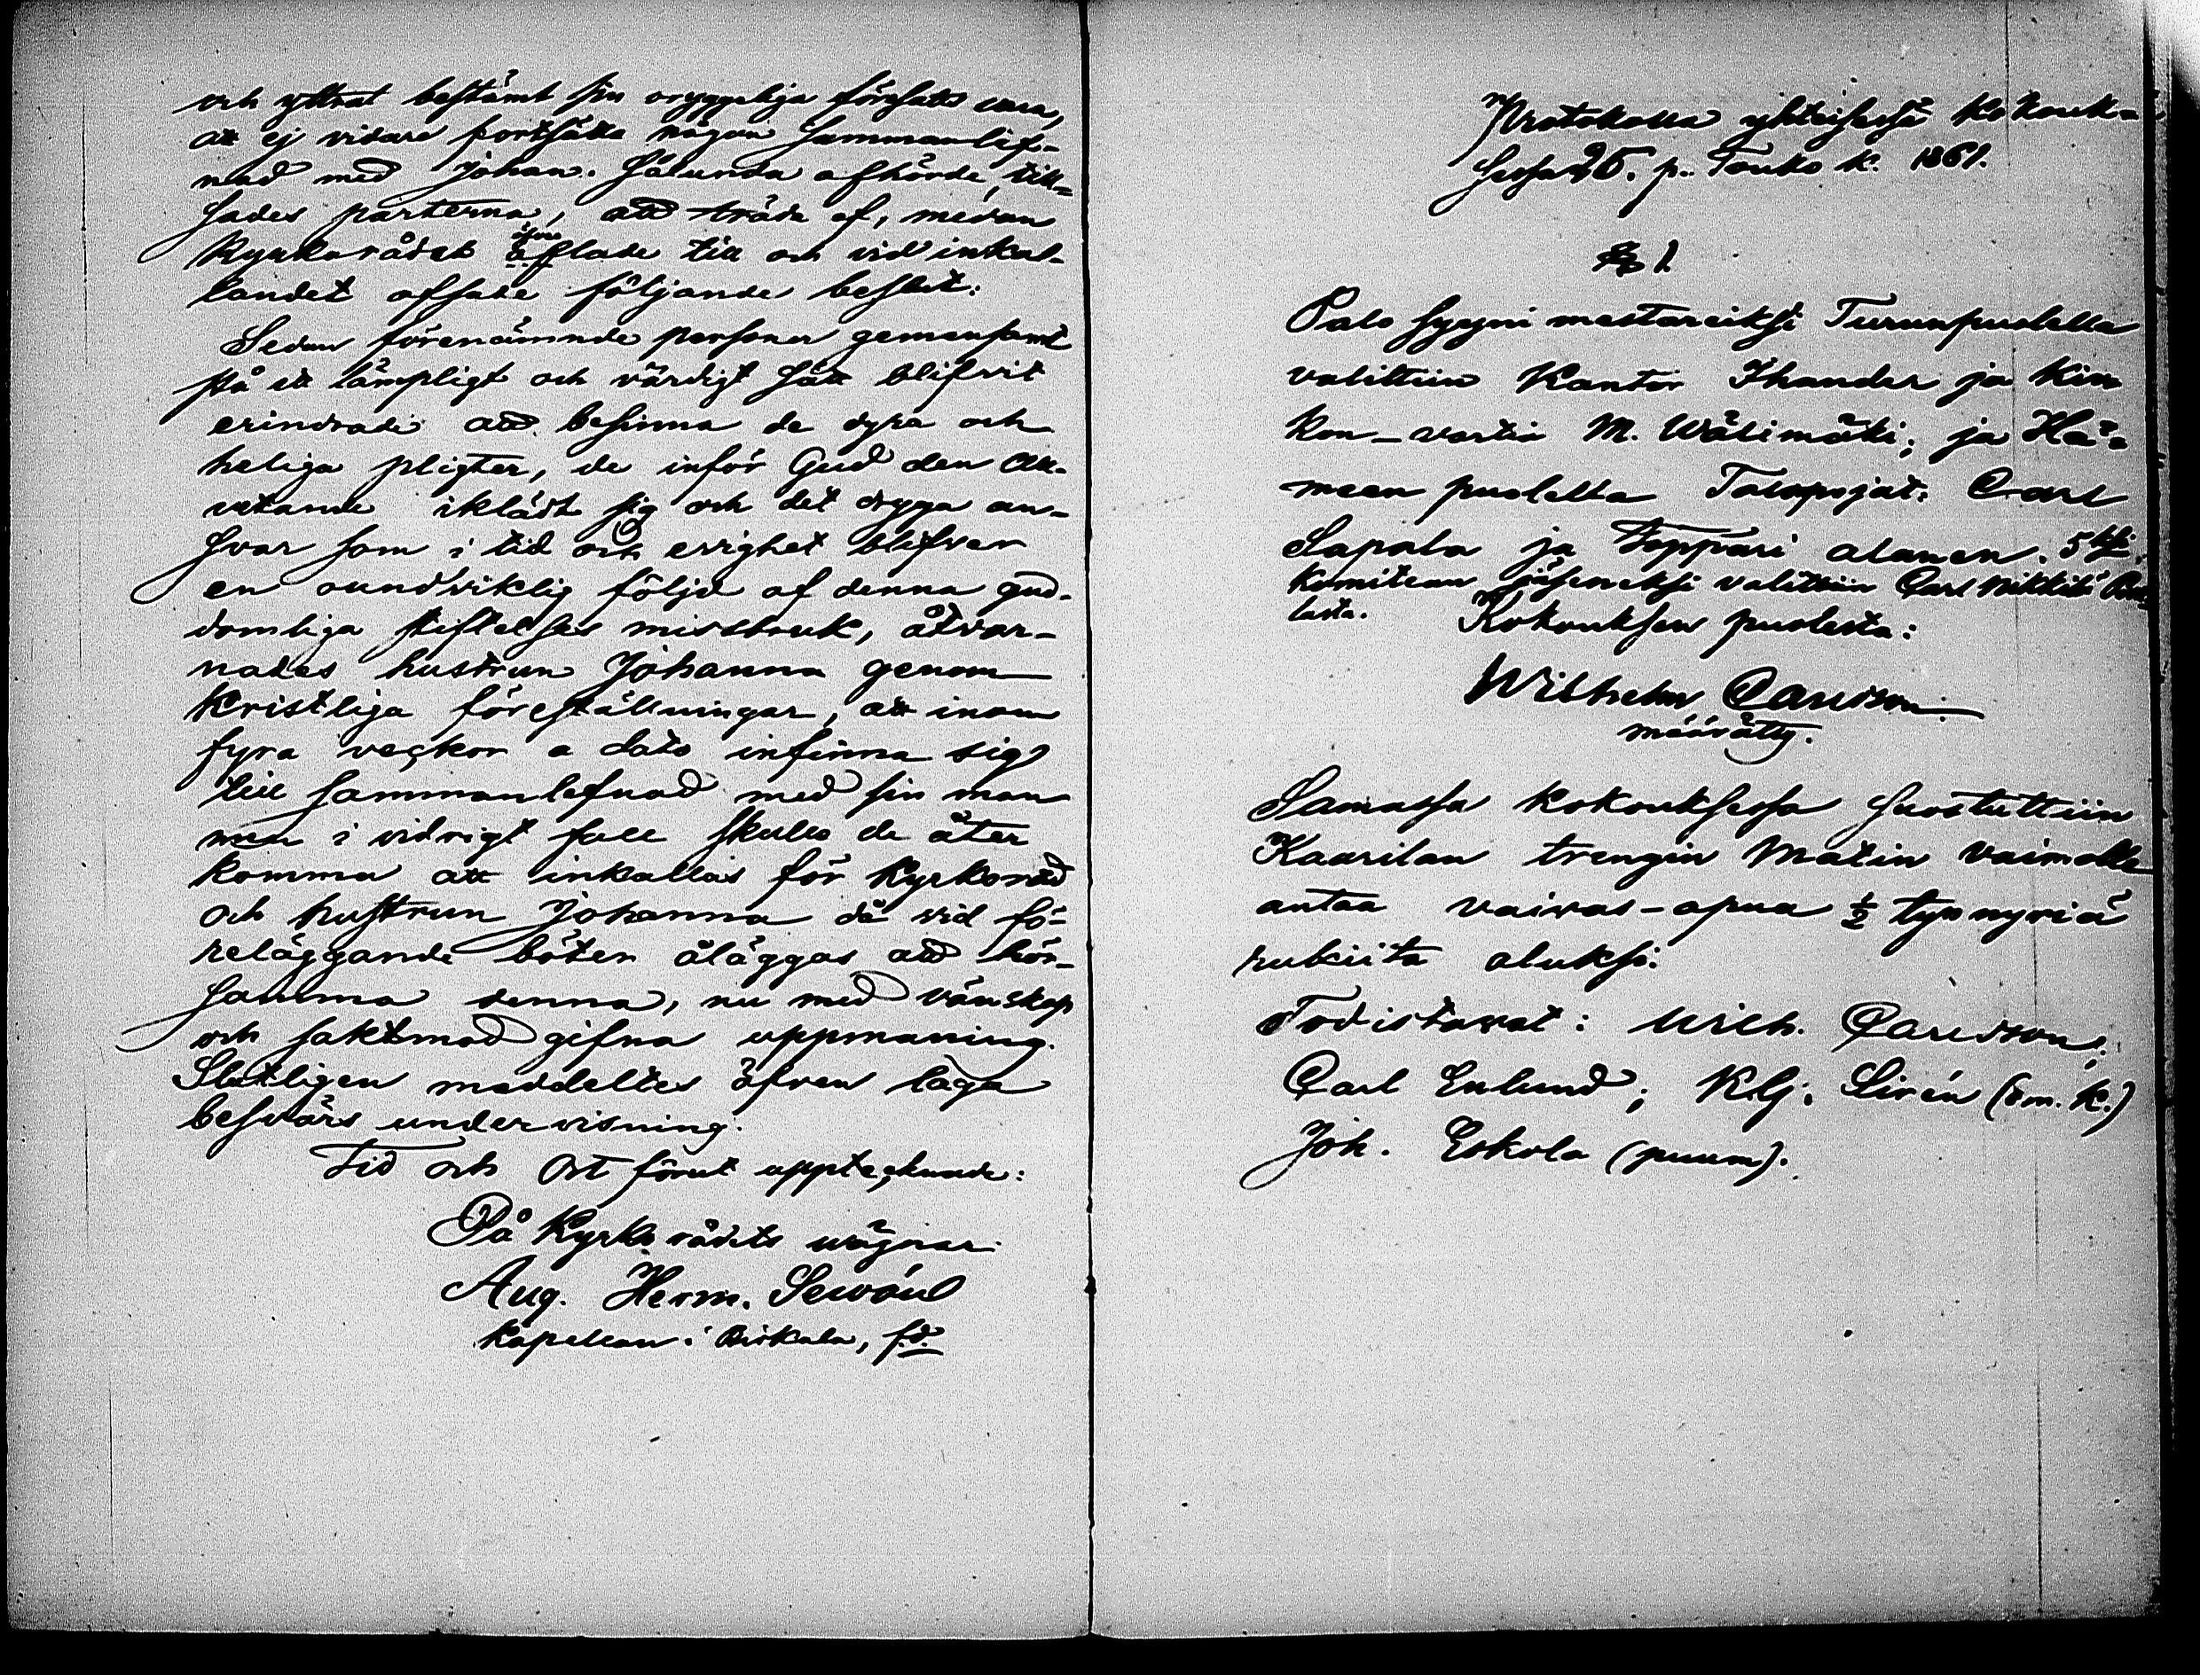 och yttrat bestämt sin oryggeliga föresats vara,
att ej vidare fortsätta någon sammanlef-
nad med Johan. Sålunda afhörde, till-
sades parterna, att träda af, medan
Kyrkorådet öfver lade till och vid inkal-
landet afsade följande beslut:
Sedan förenämnde personer gemensamt
på ett lämpligt och värdigt sätt blifvit
erindrade att besinna de dyra och
heliga pligter, de inför Gud den all-
vetande iklädt sig och det dryga an-
svar som i tid och evighet blifver
en oundviklig följd af denna gud-
domliga stiftelses missbruk, åtvar-
nades hustrun Johanna genom
Kristliga föreställningar, att inom
fyra veckor a dato infinna sig
till sammanlefnad med sin man
men i vidrigt fall skulle de åter
komma att inkallas för Kyrkoråd
och hustrun Johanna då vid fö-
reläggande böter åläggas att hör-
samma denna, nu med vänskap
och saktmod gifna uppmaning.
Slutligen meddeltes äfven laga
besvärs undervisning.
Tid och Ort förut upptecknade:
På Kyrko rådets vägnar
Aug. Herm. Lewón
Kapellan i Birkala, f.d.
Protokolla yhteisessä kokouk-
sessa 26. p. Touko k. 1861.
§ 1.
Palo syyni mestareiksi Turunpuolella
valittiin Kantor Ikander ja Kir-
kon-vartia M. Wälimäki; ja Hä-
meen puolella Talonpojat: Carl
Sapala ja Toppari alanen. 5ksi
Komitean jäseneksi valittiin Carl Mikkilä
lasta. Kokouksen puolesta:
Wilhelm Carlson
määrätty.
Samassa kokouksessa suostuttiin
Kaarilan trengin Matin vaimolle
antaa vaivas-apua ½ tynnyriä
rukiita aluksi.
Todistavat: Wilh. Carlson;
Carl Enlund; K.G. Sirén (om. k.)
Joh. Eskola (puum).